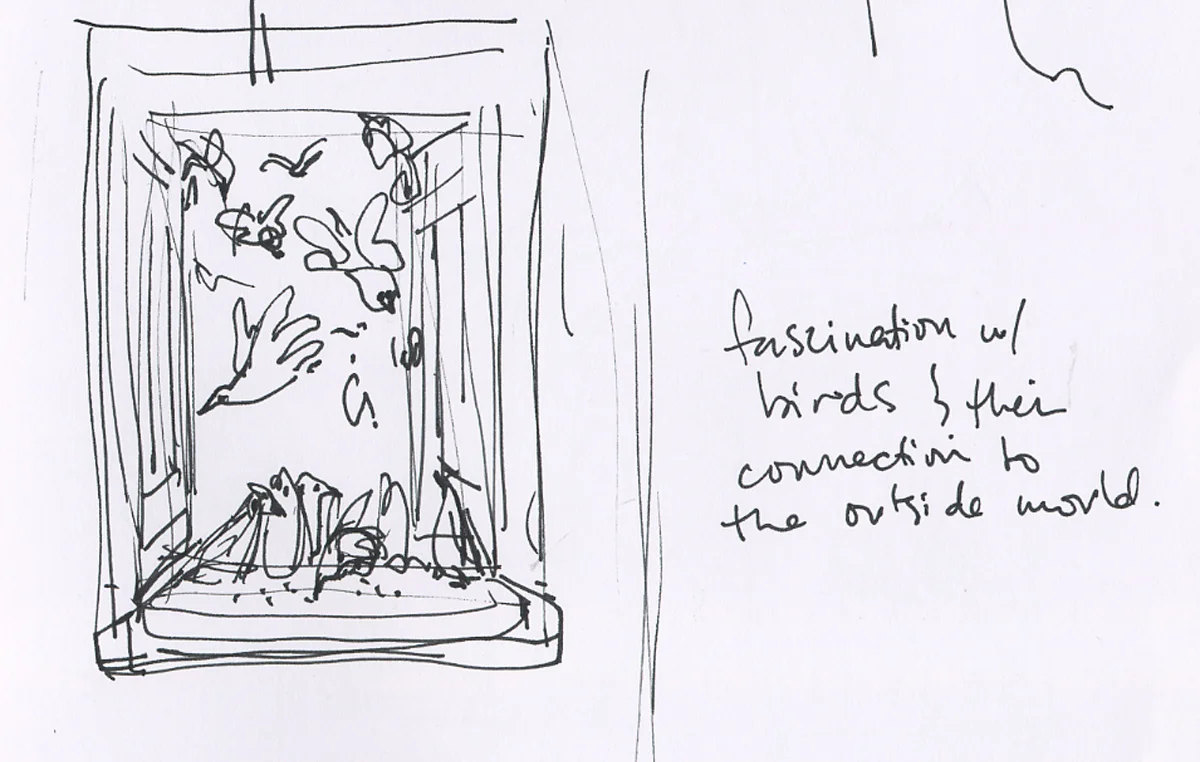 fascination w/
birds & their
connection to
the outside world.